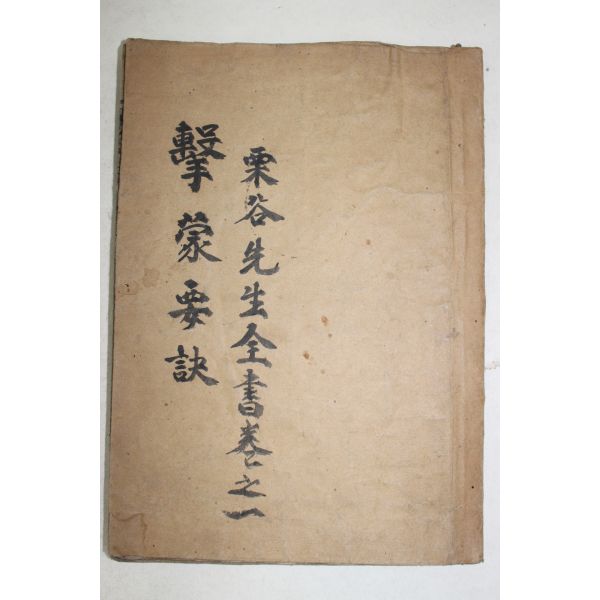 栗谷先生全書卷之一
擊蒙要訣